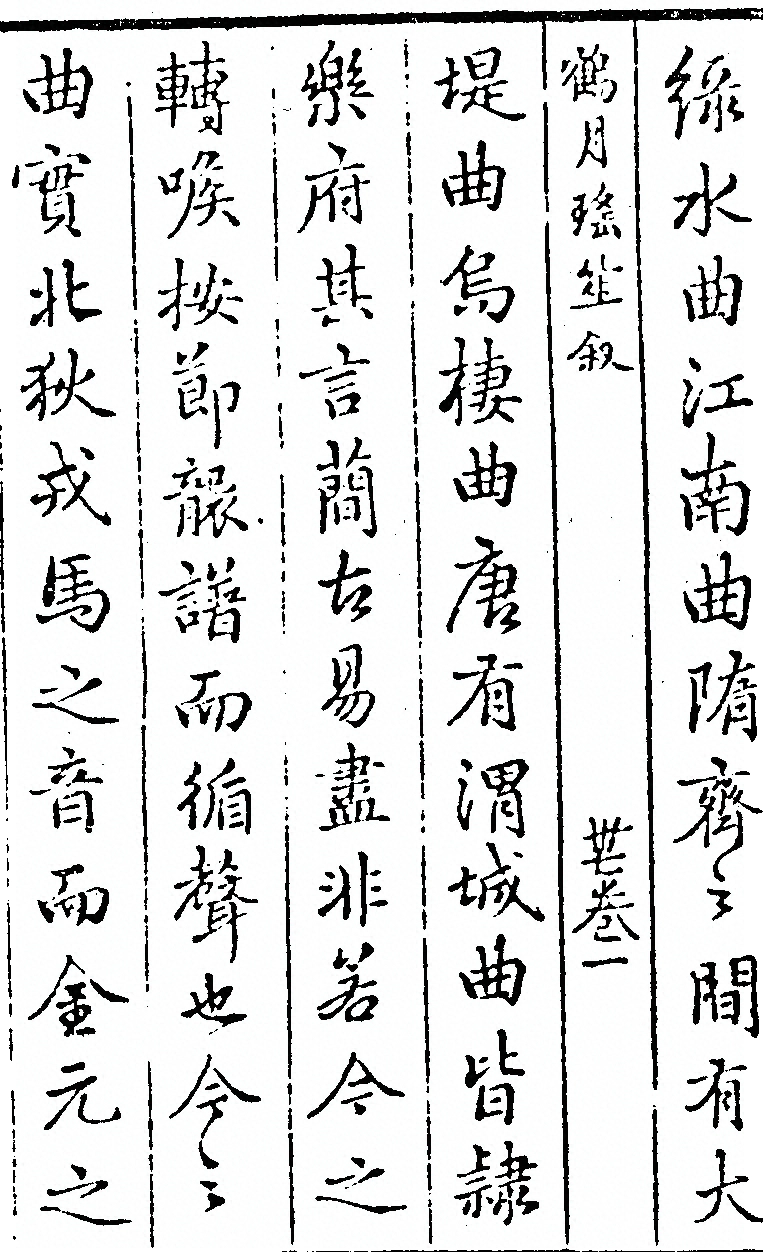 綠水曲江南曲隋齊之間有大
鶴月瑤笙叙 卷一
堤曲烏棲曲唐有渭城曲皆隸
樂府其言簡古易盡非若今之
轉喉按節諧譜而循聲也今之
曲實北狄戎馬之音而金元之